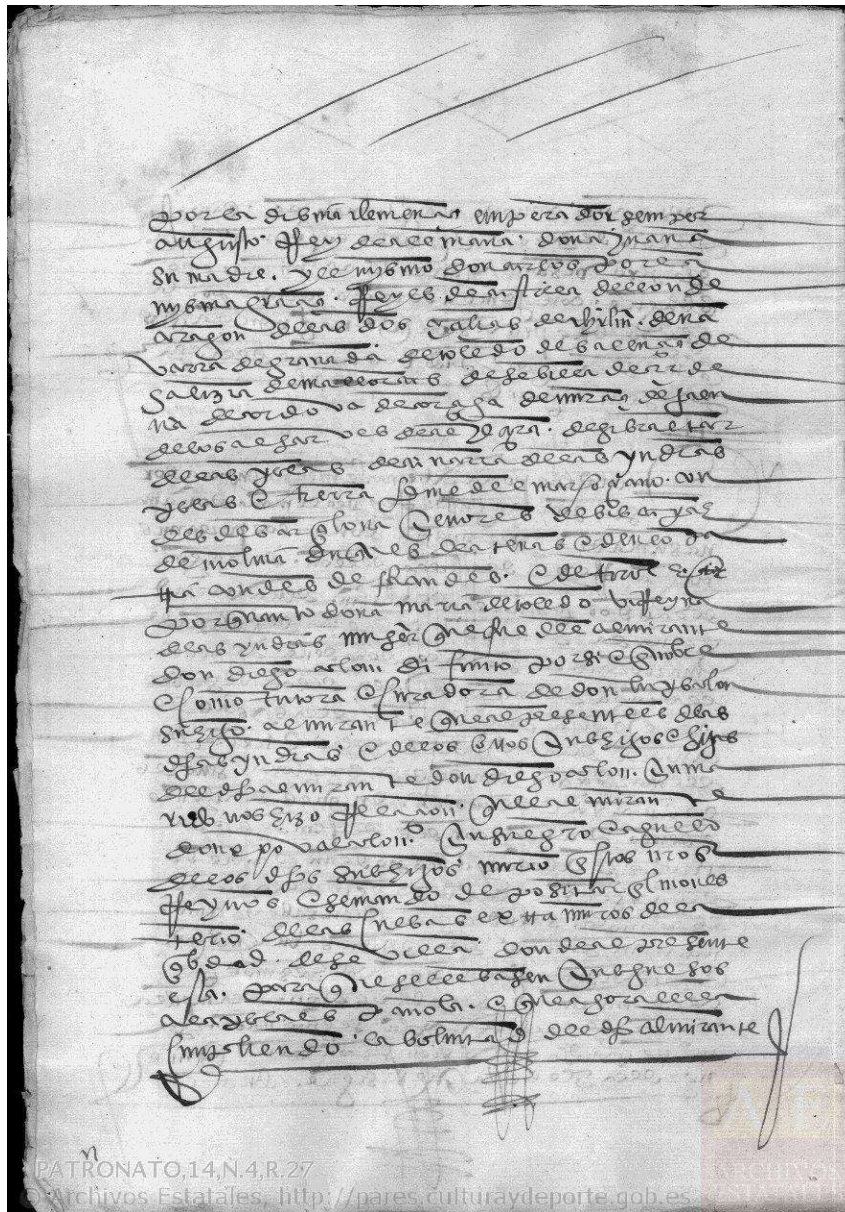 por la divina clemençia enperador senper
augusto Rey de alemania doña juana
su madre y el mysmo don carlos por la
mysma graçia Reyes de castilla de leon de
aragon de las dos çeçilias de jherusalem de na
varra de granada de toledo de valençia de
galizia de mallorcas de sevilla de çerde
ña de cordova de corçega de murçia de jaen
de los algarves de algezira de gibraltar
de las yslas de canaria de las yndias
yslas e tierra firme del mar oçeano con
des de barçelona señores de bizcaya
de molina duques de atenas e de neo pa
tria condes de flandes e de tirol
por quanto doña maria de toledo viReyna
de las yndias muger que fue del almirante
don diego colon difunto por si e en nombre
e como tutora e curadora de don luys colon
su hijo almirante que al presente es de las
dhas yndias e de los otros sus hijos e hijas
del dho almirante don diego colon su ma
rido nos hizo Relaçion quel almirante
don xpoval colon su suegro e aguelo
de los dhos sus hijos murio en estos nros
Reynos e se mando depositar en el mones
terio de las cuebas extra muros de la
çibdad de sevilla donde al presente
esta para que se llevasen sus huesos
a la ysla española e que agora ella
cunpliendo la boluntad del dho almirante
PATRONATO,14,N.4,R.27
© Archivos Estatales, http://pares.culturaydeporte.gob.es